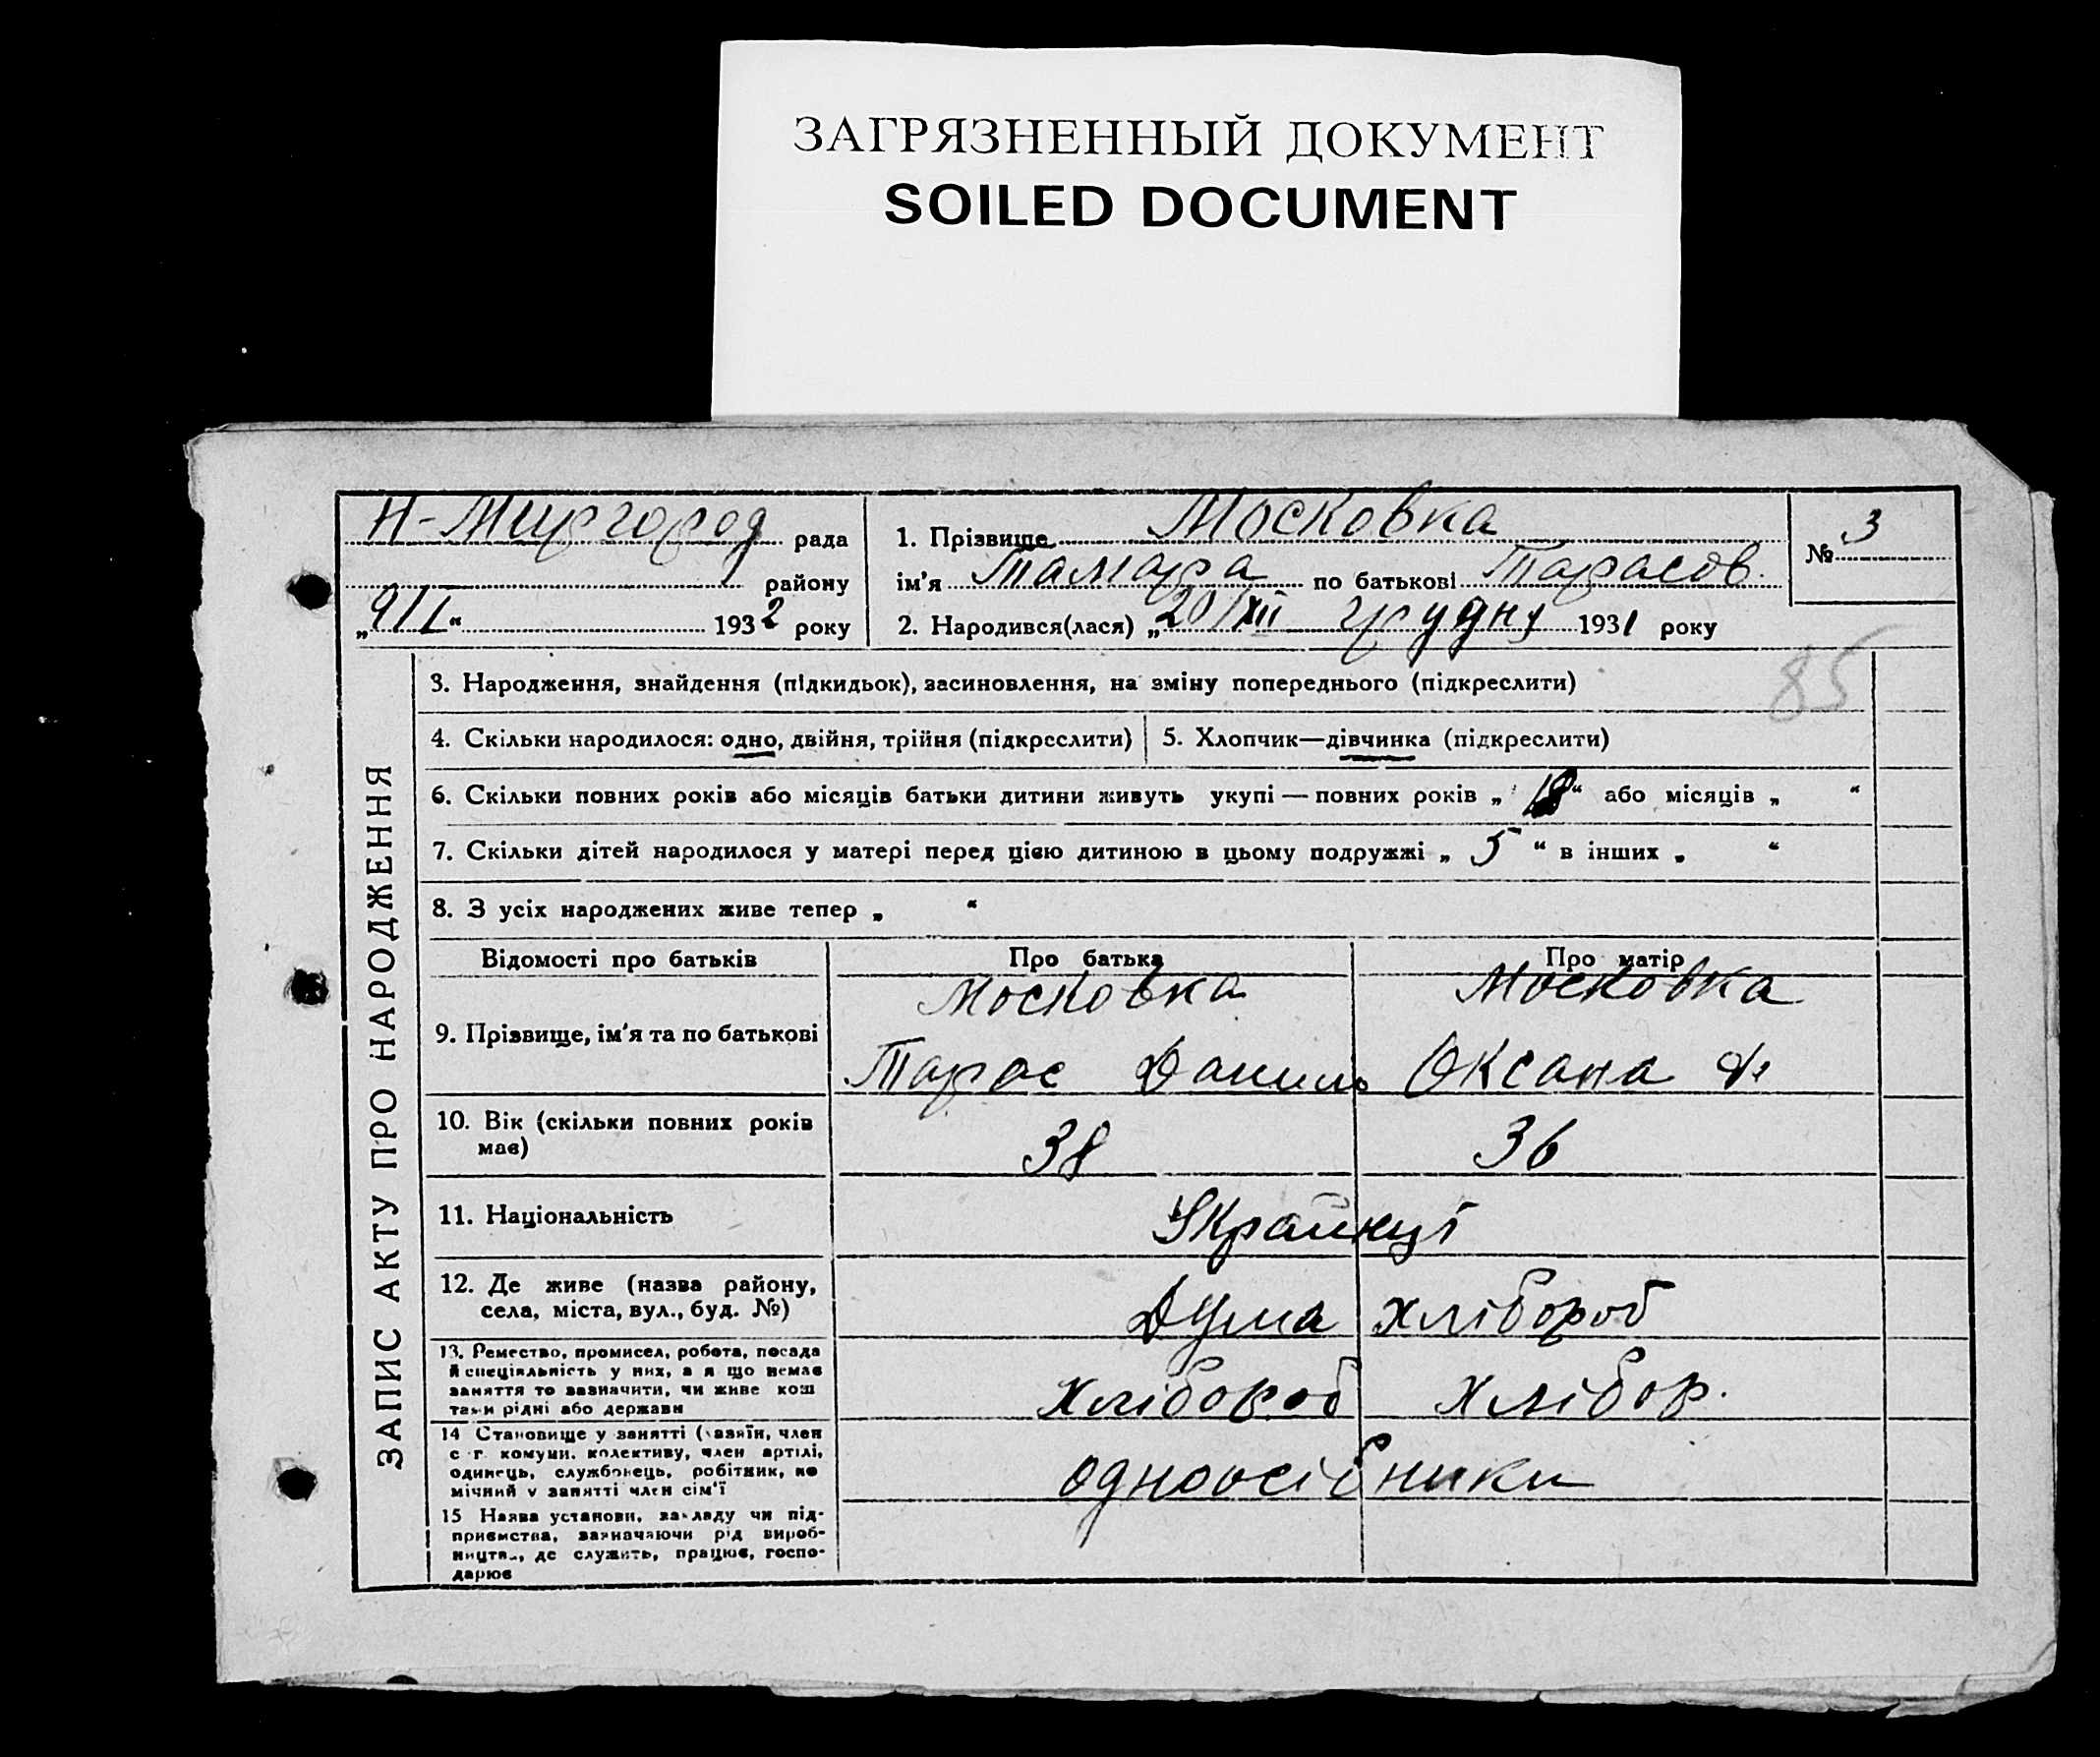 ЗАГРЯЗНЕННЫЙ ДОКУМЕНТ
SOILED DOCUMENT
Н-Миргород рада
району
„9/I“ 1932 року
1. Прізвище Московка
ім'я Тамара по батькові Тарасов.
2. Народився(лася) „20/XII грудня 1931 року
№ 3
85
ЗАПИС АКТУ ПРО НАРОДЖЕННЯ
3. Народження, знайдення (підкидьок), засиновлення, на зміну попереднього (підкреслити)
4. Скільки народилося: одно, двійня, трійня (підкреслити)
5. Хлопчик—дівчинка (підкреслити)
6. Скільки повних років або місяців батьки дитини живуть укупі — повних років „ “ або місяців „ “
7. Скільки дітей народилося у матері перед цією дитиною в цьому подружжі „ 5 “ в інших „ “
8. З усіх народжених живе тепер „ “
Відомості про батьків
Про батька
Про матір
9. Прізвище, ім'я та по батькові
Московка
Тарас Данил
Московка
Оксана
10. Вік (скільки повних років
має)
38
36
11. Національність
Українці
12. Де живе (назва району,
села, міста, вул., буд. №)
Дума хлібороб
13. Ремество, промисел, робота, посада
й спеціяльність у них, а я що немає
заняття то зазначити, чи живе кош
тами рідні або держави
хлібороб
хлібор.
14 Становище у занятті (хазяїн, член
с г. комуни, колективу, член артілі,
одинець, службовець, робітник, по
мічний у занятті член сім'ї
одноосібники
15 Назва установи, закладу чи під-
приємства, зазначаючи рід вироб-
ництва, де служить, працює, госпо-
дарює